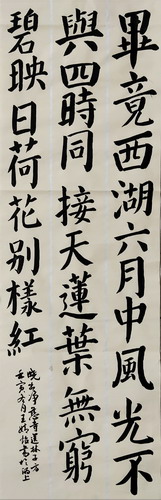 畢竟西湖六月中風光不
與四時同接天蓮葉無窮
碧映日荷花别樣紅
曉出淨慈寺送林子方
壬寅冬月王 怡書於滬上